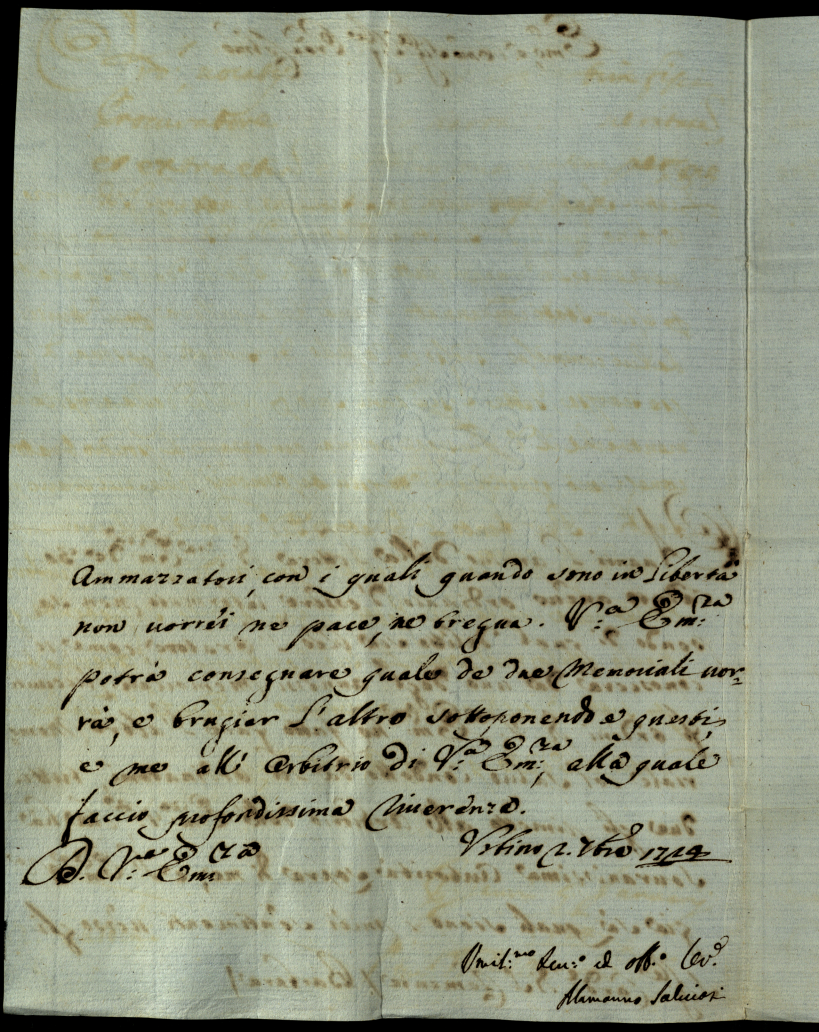 Ammazzatori, con i quali quando sono in Libertà
non vorrei ne pace, ne tregua. V.ª Em:ᶻᵃ
potrà consegnare quale de due Memoriali vor-
rà, e brugier L'altro sottoponendo e questi,
e me all' Arbitrio di V.ª Em:ᶻᵃ, alla quale
faccio profondissima riverenza.
D. V.ª Em:ᶻᵃ Urbino 2. 7bre 1714
Umil:ᵐᵒ Seu:ᵉ ed obb.ᵒ
Alamanno Salviati